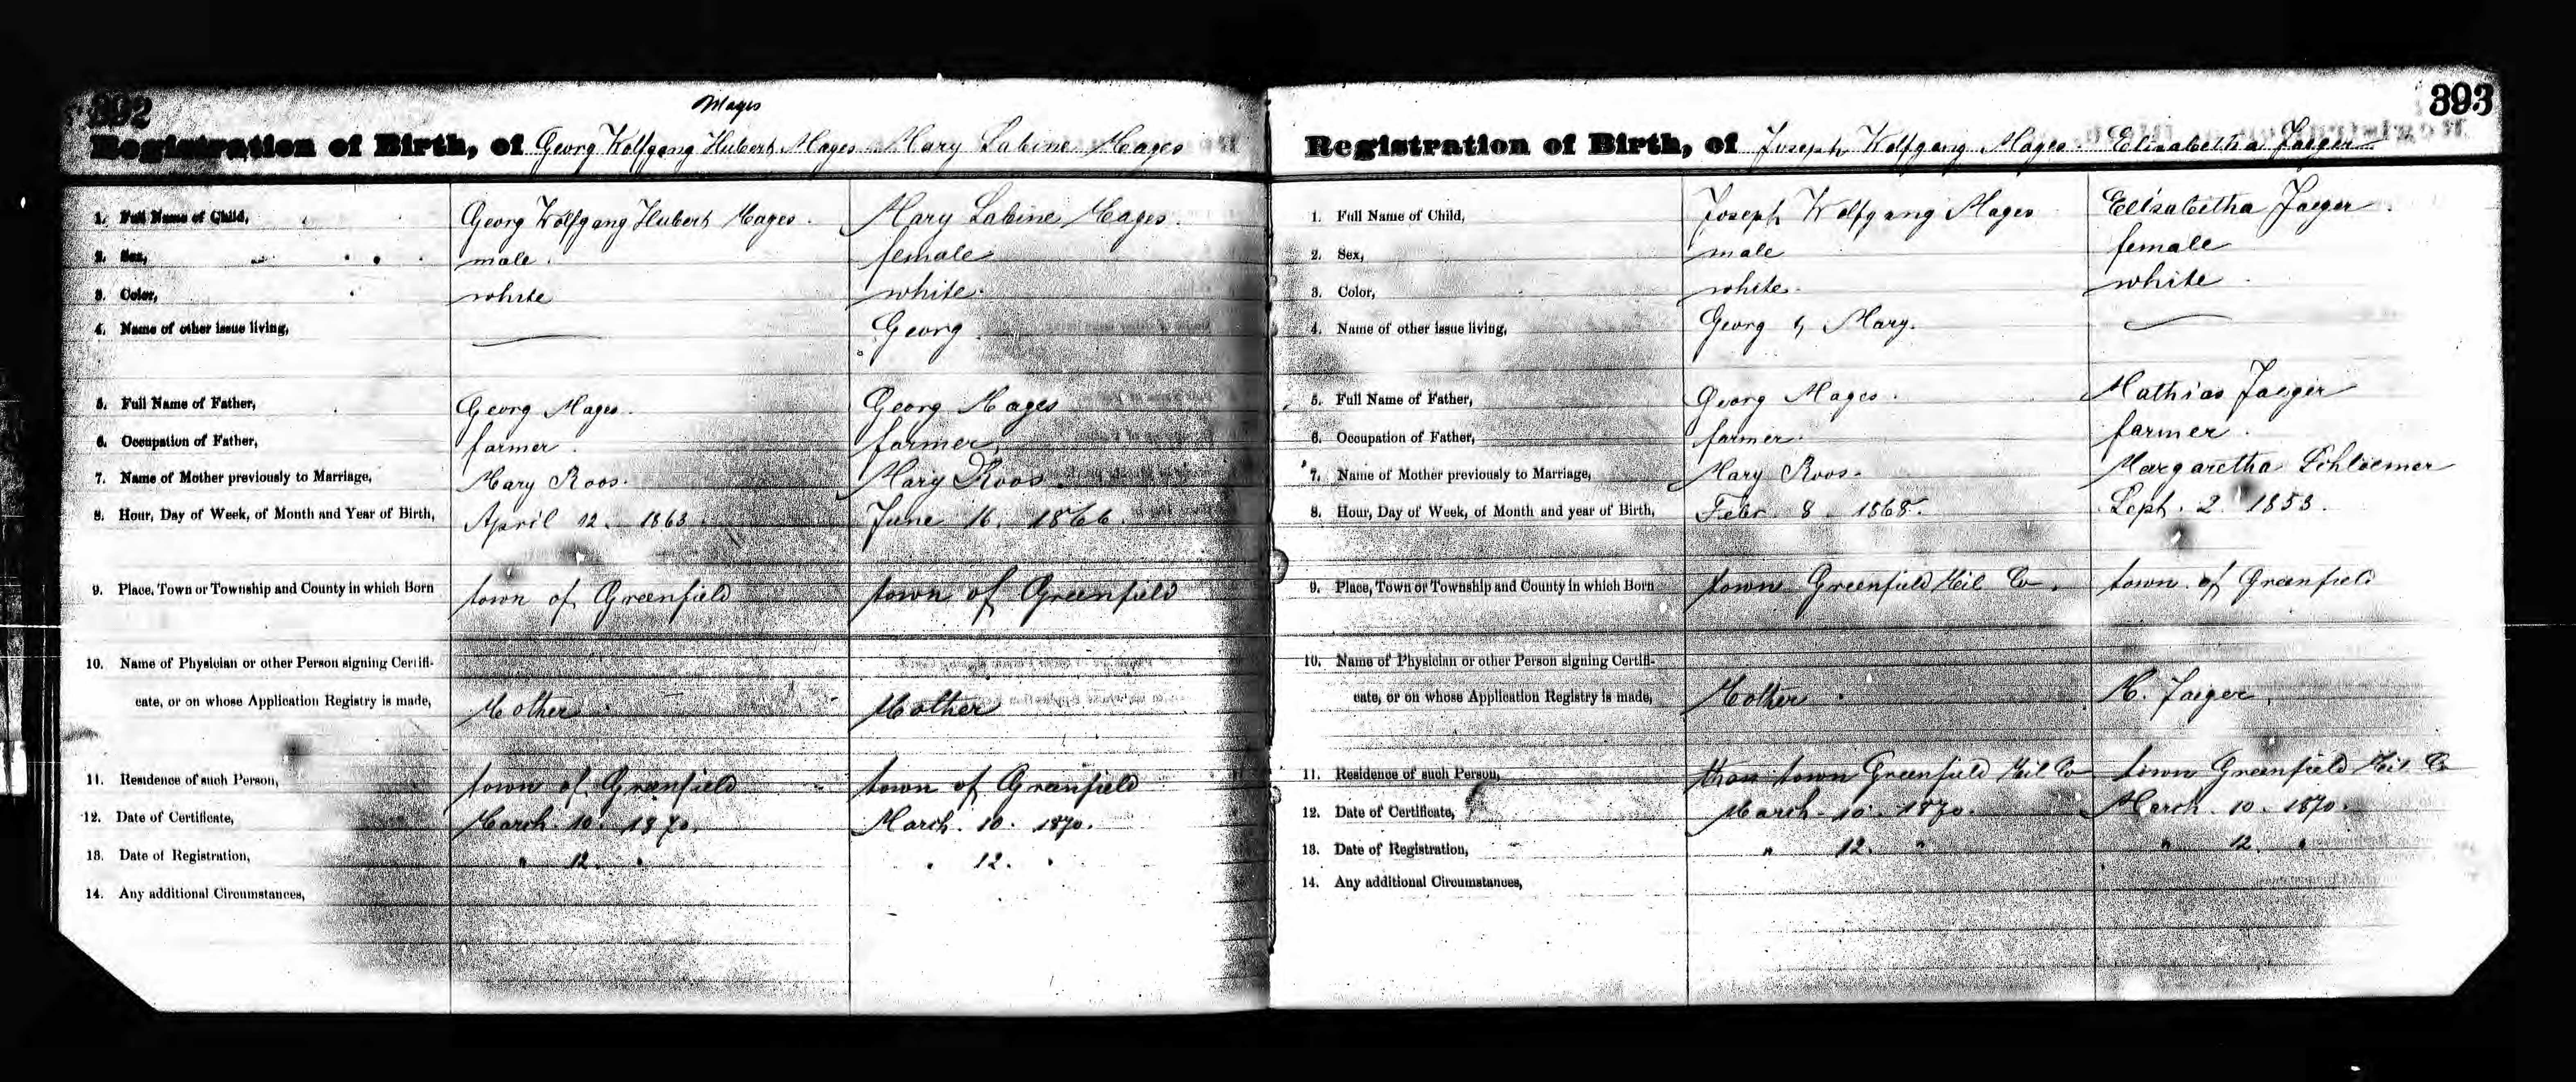 392
Mages
Registration of Birth, of Georg Wolfgang Hubert Mages Mary Sabine Mages
1. Full Name of Child, Georg Wolfgang Hubert Mages. Mary Sabine Mages.
2. Sex, male. female
3. Color, white white.
4. Name of other issue living, — Georg.
5. Full Name of Father, Georg Mages. Georg Mages
6. Occupation of Father, farmer. farmer.
7. Name of Mother previously to Marriage, Mary Roos. Mary Roos.
8. Hour, Day of Week, of Month and Year of Birth, April 12. 1863. June 16. 1866.
9. Place, Town or Township and County in which Born town of Greenfield town of Greenfield
10. Name of Physician or other Person signing Certifi-
cate, or on whose Application Registry is made, Mother Mother
11. Residence of such Person, town of Greenfield town of Greenfield
12. Date of Certificate, March. 10. 1870. March. 10. 1870.
13. Date of Registration, " 12. " " 12. "
14. Any additional Circumstances,
393
Registration of Birth, of Joseph Wolfgang Mages. Elisabetha Jaeger
1. Full Name of Child, Joseph Wolfgang Mages Elisabetha Jaeger.
2. Sex, male female
3. Color, white. white.
4. Name of other issue living, Georg & Mary. —
5. Full Name of Father, Georg Mages. Mathias Jaeger
6. Occupation of Father, farmer. farmer.
7. Name of Mother previously to Marriage, Mary Roos. Margaretha Schloemer
8. Hour, Day of Week, of Month and year of Birth, Febr. 8. 1868. Sept. 2. 1853.
9. Place, Town or Township and County in which Born town Greenfield Mil Co. town of Greenfield
10. Name of Physician or other Person signing Certifi-
cate, or on whose Application Registry is made, Mother M. Jaeger.
11. Residence of such Person, town Greenfield Mil Co town Greenfield Mil. Co
12. Date of Certificate, March 10. 1870. March. 10. 1870.
13. Date of Registration, " 12. " " 12. "
14. Any additional Circumstances,